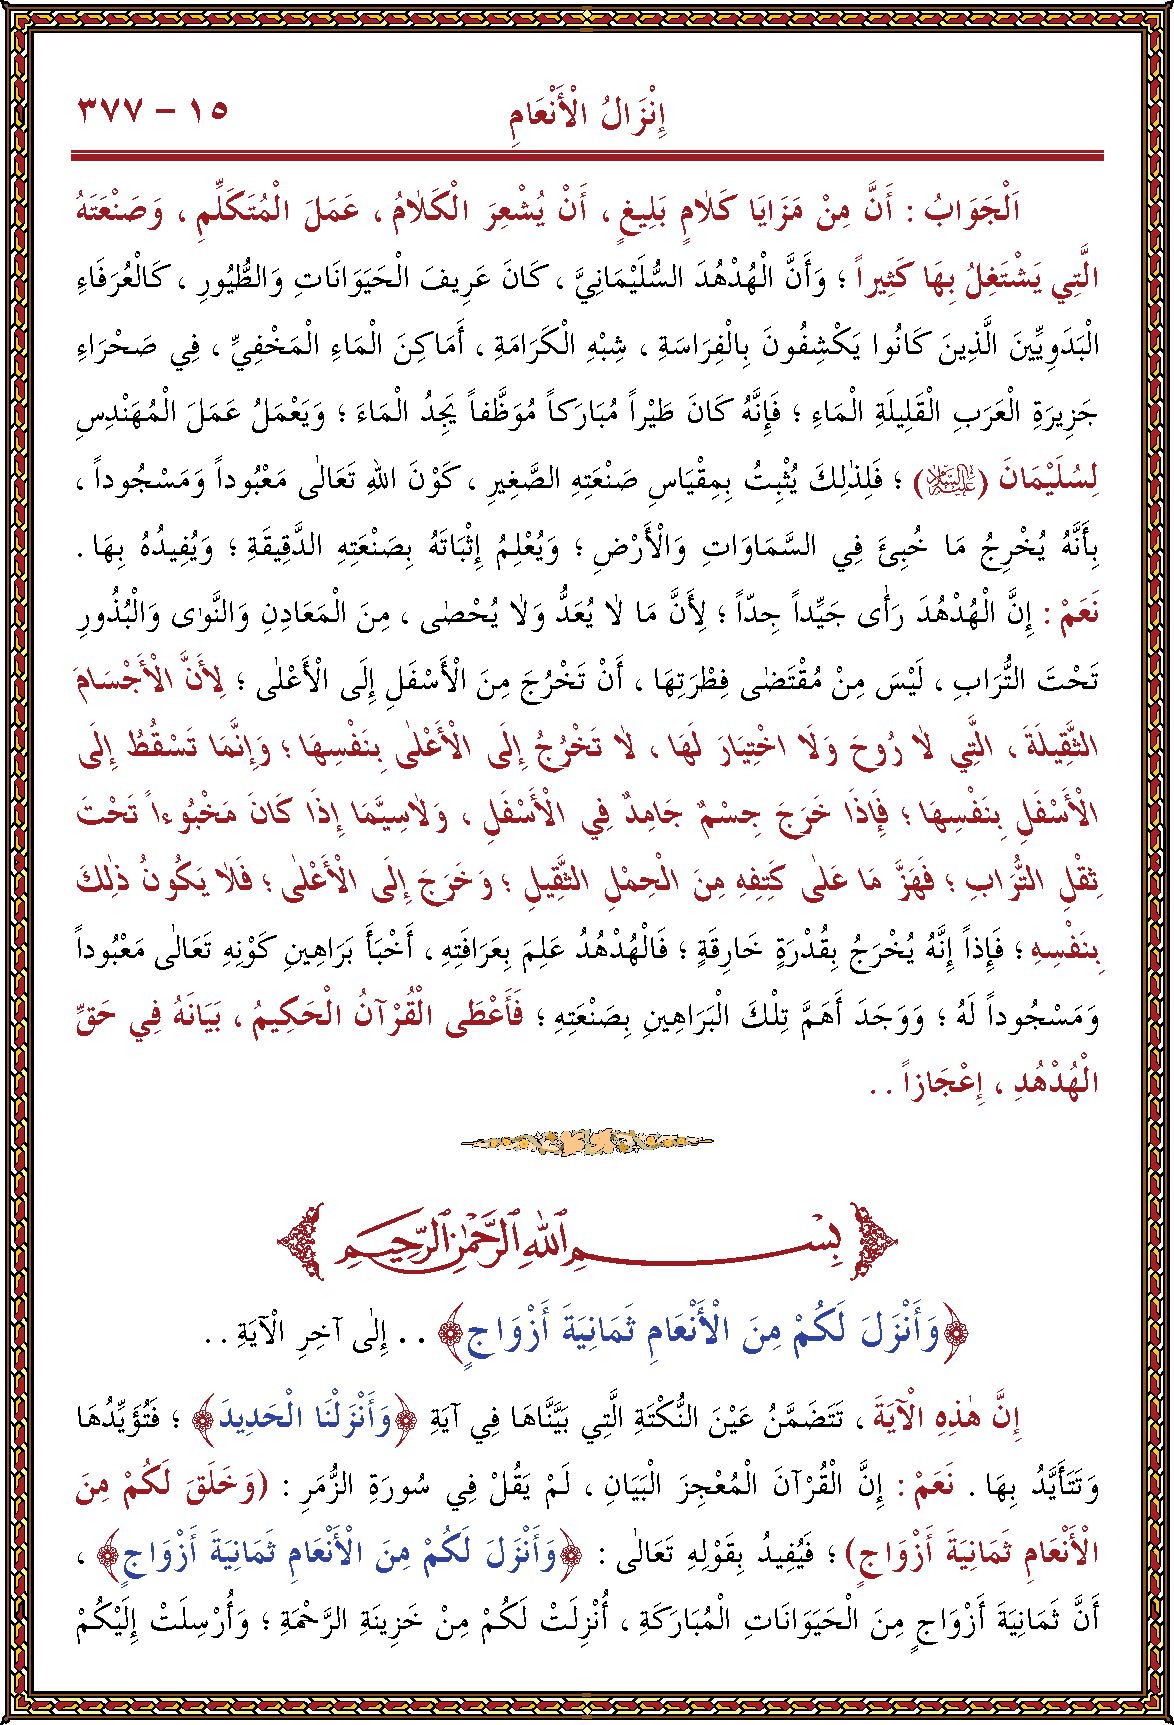 إِنْزَالُ الْأَنْعَامِ ١٥ - ٣٧٧
اَلْجَوَابُ : أَنَّ مِنْ مَزَايَا كَلاٰمٍ بَلِيغٍ ، أَنْ يُشْعِرَ الْكَلاٰمُ ، عَمَلَ الْمُتَكَلِّمِ ، وَصَنْعَتَهُ
الَّتِي يَشْتَغِلُ بِهَا كَثِيراً ؛ وَأَنَّ الْهُدْهُدَ السُّلَيْمَانِيَّ ، كَانَ عَرِيفَ الْحَيَوَانَاتِ وَالطُّيُورِ ، كَالْعُرَفَاءِ
الْبَدَوِيِّينَ الَّذِينَ كَانُوا يَكْشِفُونَ بِالْفِرَاسَةِ ، شِبْهِ الْكَرَامَةِ ، أَمَاكِنَ الْمَاءِ الْمَخْفِيِّ ، فِي صَحْرَاءِ
جَزِيرَةِ الْعَرَبِ الْقَلِيلَةِ الْمَاءِ ؛ فَإِنَّهُ كَانَ طَيْراً مُبَارَكاً مُوَظَّفاً يَجِدُ الْمَاءَ ؛ وَيَعْمَلُ عَمَلَ الْمُهَنْدِسِ
لِسُلَيْمَانَ (عَلَيْهِ السَّلَامُ) ؛ فَلِذٰلِكَ يُثْبِتُ بِمِقْيَاسِ صَنْعَتِهِ الصَّغِيرِ ، كَوْنَ اللهِ تَعَالٰى مَعْبُوداً وَمَسْجُوداً ،
بِأَنَّهُ يُخْرِجُ مَا خُبِئَ فِي السَّمَاوَاتِ وَالْأَرْضِ ؛ وَيُعْلِمُ إِثْبَاتَهُ بِصَنْعَتِهِ الدَّقِيقَةِ ؛ وَيُفِيدُهُ بِهَا .
نَعَمْ : إِنَّ الْهُدْهُدَ رَأَى جَيِّداً جِدّاً ؛ لِأَنَّ مَا لاٰ يُعَدُّ وَلاٰ يُحْصٰى ، مِنَ الْمَعَادِنِ وَالنَّوٰى وَالْبُذُورِ
تَحْتَ التُّرَابِ ، لَيْسَ مِنْ مُقْتَضٰى فِطْرَتِهَا ، أَنْ تَخْرُجَ مِنَ الْأَسْفَلِ إِلَى الْأَعْلٰى ؛ لِأَنَّ الْأَجْسَامَ
الثَّقِيلَةَ ، الَّتِي لاٰ رُوحَ وَلَا اخْتِيَارَ لَهَا ، لاٰ تَخْرُجُ إِلَى الْأَعْلٰى بِنَفْسِهَا ؛ وَإِنَّمَا تَسْقُطُ إِلَى
الْأَسْفَلِ بِنَفْسِهَا ؛ فَإِذَا خَرَجَ جِسْمٌ جَامِدٌ فِي الْأَسْفَلِ ، وَلاٰسِيَّمَا إِذَا كَانَ مَخْبُوءاً تَحْتَ
ثِقْلِ التُّرَابِ ؛ فَهَزَّ مَا عَلٰى كَتِفِهِ مِنَ الْحِمْلِ الثَّقِيلِ ؛ وَخَرَجَ إِلَى الْأَعْلٰى ؛ فَلاٰ يَكُونُ ذٰلِكَ
بِنَفْسِهِ ؛ فَإِذاً إِنَّهُ يُخْرَجُ بِقُدْرَةٍ خَارِقَةٍ ؛ فَالْهُدْهُدُ عَلِمَ بِعَرَافَتِهِ ، أَخْبَأَ بَرَاهِينِ كَوْنِهِ تَعَالٰى مَعْبُوداً
وَمَسْجُوداً لَهُ ؛ وَوَجَدَ أَهَمَّ تِلْكَ الْبَرَاهِينِ بِصَنْعَتِهِ ؛ فَأَعْطَى الْقُرْآنُ الْحَكِيمُ ، بَيَانَهُ فِي حَقِّ
الْهُدْهُدِ ، إِعْجَازاً . .
بِسْمِ اللّٰهِ الرَّحْمٰنِ الرَّحِيمِ
﴿وَأَنْزَلَ لَكُمْ مِنَ الْأَنْعَامِ ثَمَانِيَةَ أَزْوَاجٍ﴾ . . إِلٰى آخِرِ الْآيَةِ . .
إِنَّ هٰذِهِ الْآيَةَ ، تَتَضَمَّنُ عَيْنَ النُّكْتَةِ الَّتِي بَيَّنَّاهَا فِي آيَةِ ﴿وَأَنْزَلْنَا الْحَدِيدَ﴾ ؛ فَتُؤَيِّدُهَا
وَتَتَأَيَّدُ بِهَا . نَعَمْ : إِنَّ الْقُرْآنَ الْمُعْجِزَ الْبَيَانِ ، لَمْ يَقُلْ فِي سُورَةِ الزُّمَرِ : (وَخَلَقَ لَكُمْ مِنَ
الْأَنْعَامِ ثَمَانِيَةَ أَزْوَاجٍ) ؛ فَيُفِيدُ بِقَوْلِهِ تَعَالٰى : ﴿وَأَنْزَلَ لَكُمْ مِنَ الْأَنْعَامِ ثَمَانِيَةَ أَزْوَاجٍ﴾ ،
أَنَّ ثَمَانِيَةَ أَزْوَاجٍ مِنَ الْحَيَوَانَاتِ الْمُبَارَكَةِ ، أُنْزِلَتْ لَكُمْ مِنْ خَزِينَةِ الرَّحْمَةِ ؛ وَأُرْسِلَتْ إِلَيْكُمْ